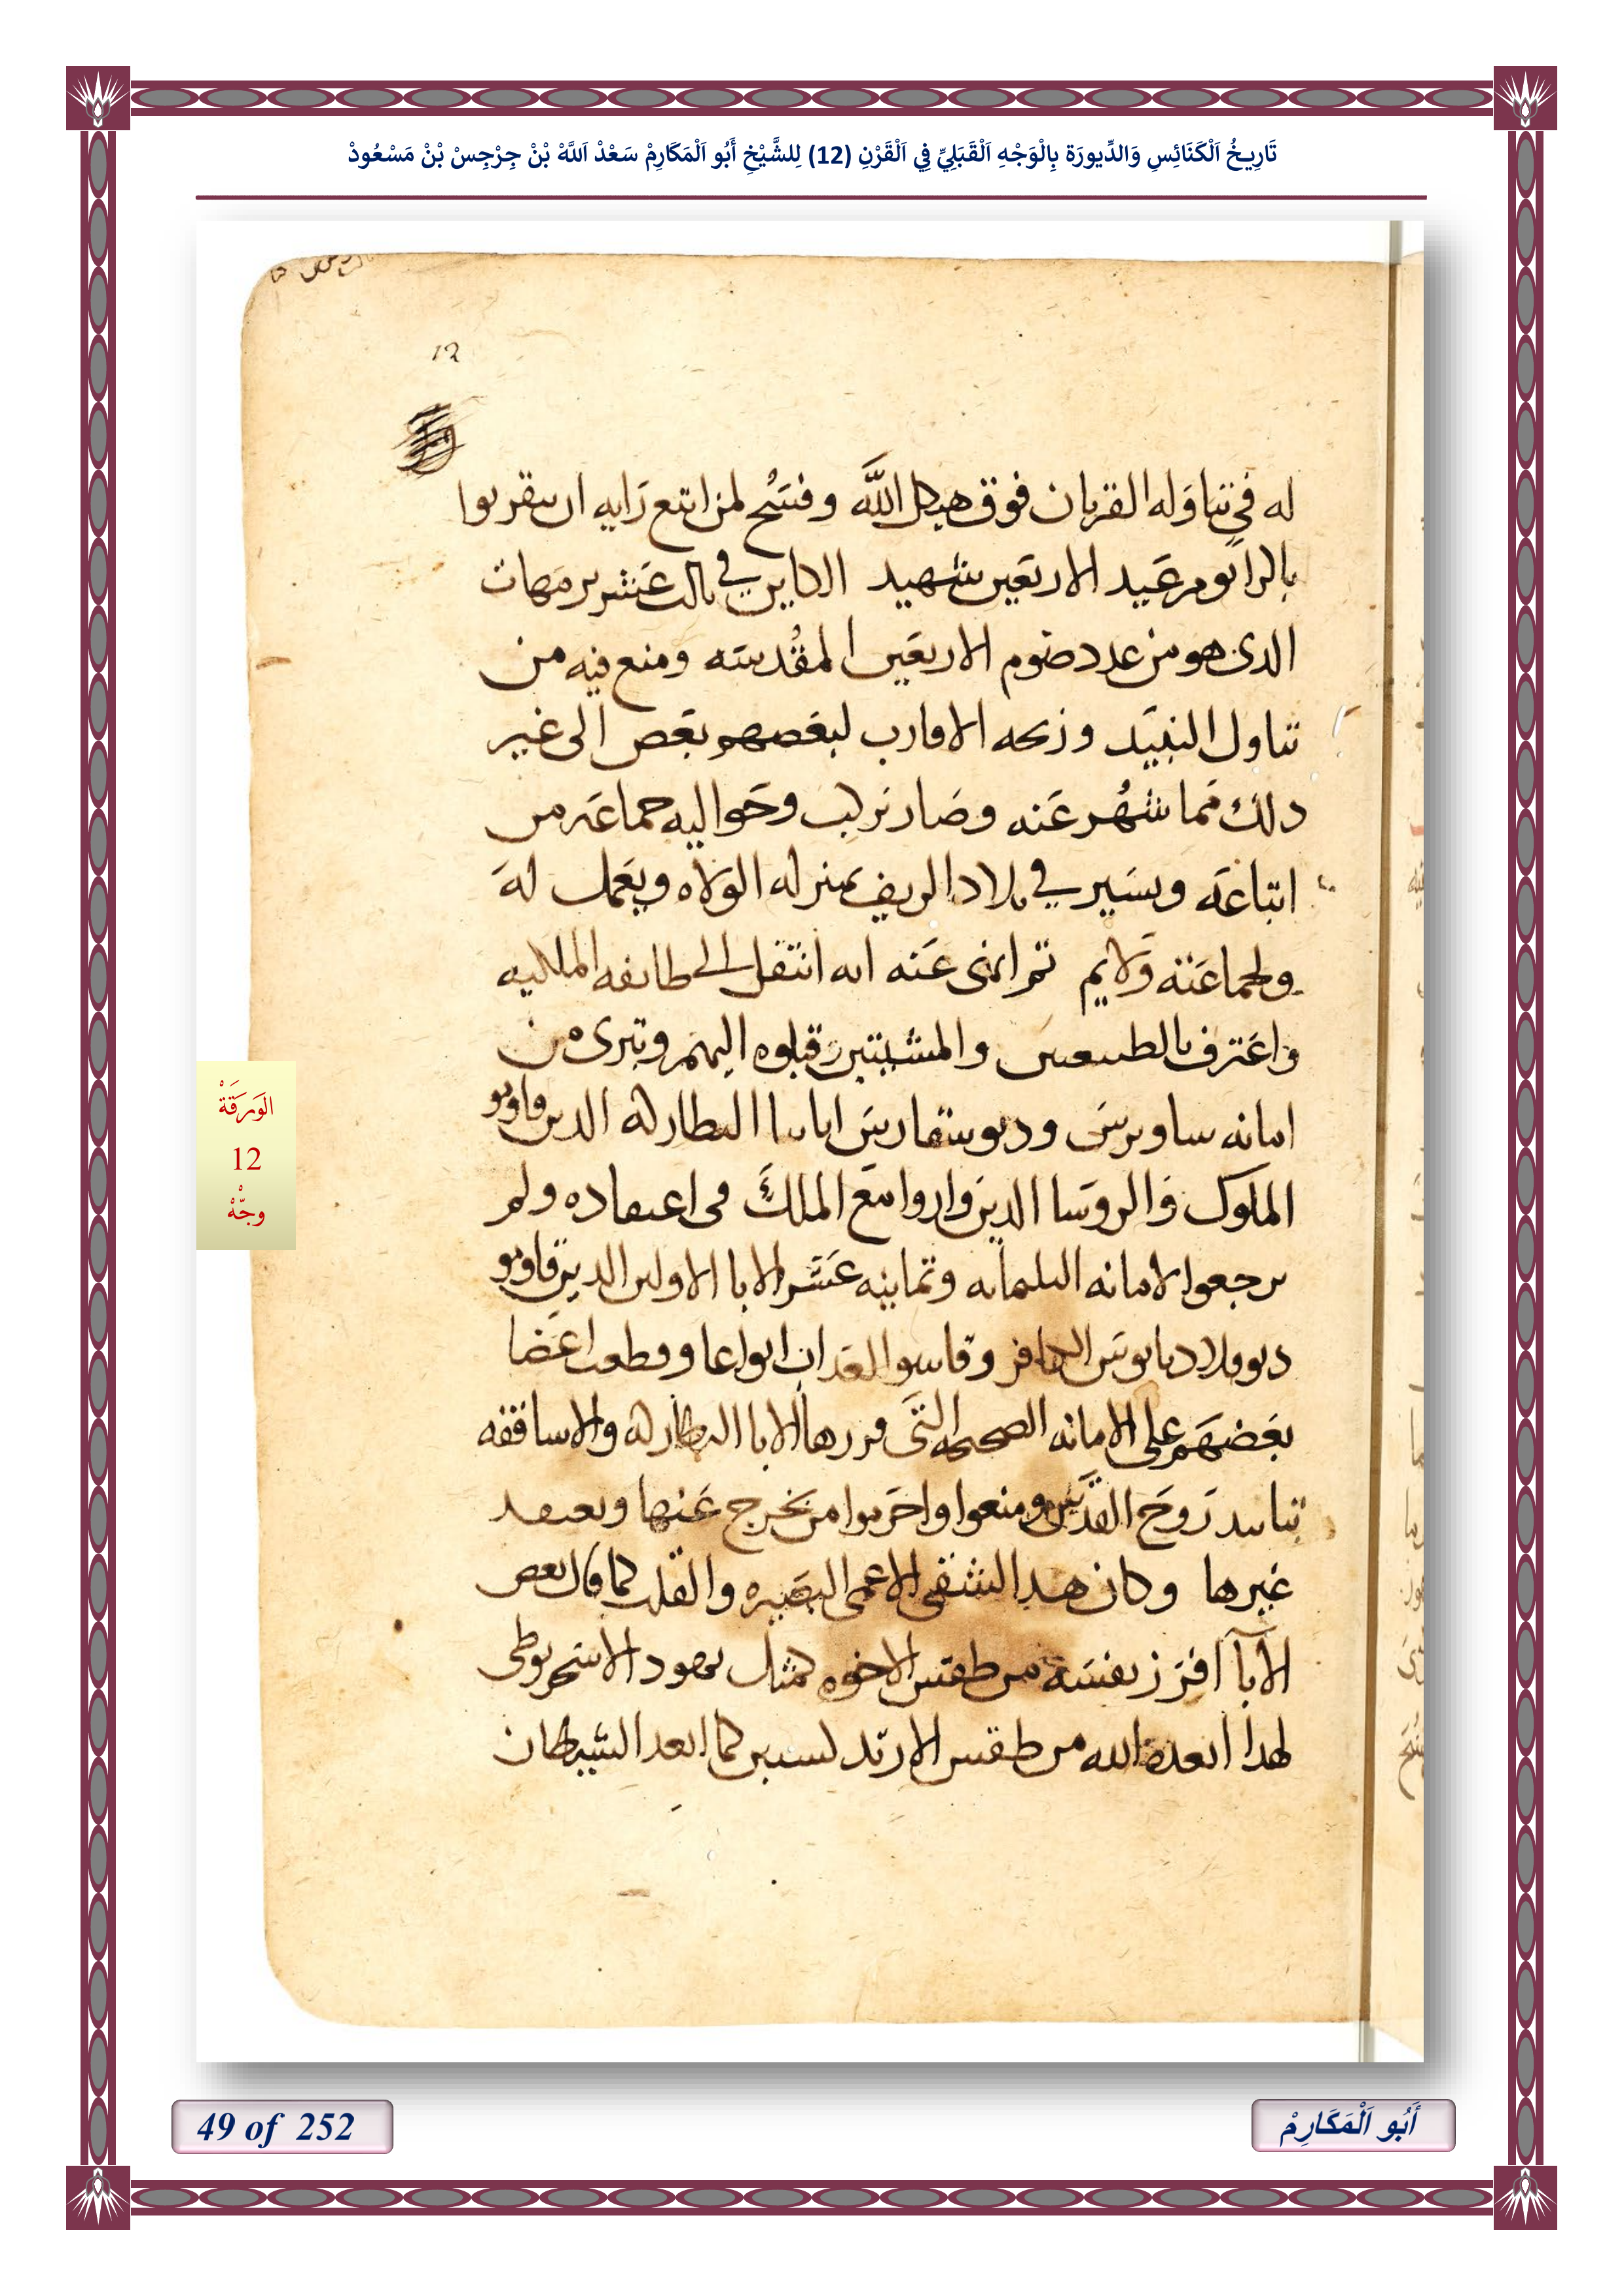 تَارِيخُ اَلْكَنَائِسِ وَالدِّيورَة بِالْوَجْهِ اَلْقَبَلِيِّ فِي اَلْقَرْنِ (12) لِلشَّيْخِ أَبُو اَلْمَكَارِمْ سَعْدْ اَللَّهْ بْنْ جِرْجِسْ بْنْ مَسْعُودْ
12
له في تناوله القربان فوق هيكل الله وفسح لمن اتبع رايه ان يتقربوا
يوم عيد الاربعين شهيد الكاين في تالت عشر برمهات
الدى هو من عدد صوم الاربعين المقدسه ومنع فيه من
تناول النبيد وزيجه الاقارب لبعضهم بعض الى غير
دلك مما شهر عنه وصار يركب وحواليه جماعه من
اتباعه ويسير في بلاد الريف بمنزله الولاه ويعمل له
ولجماعته ولايم تم انهى عنه انه انتقل الى طايفه الملكيه
واعترف بالطبيعتين والمشيتين وقبلوه اليهم وتبرى من
امانه ساويرس وديوسقارس ابايا البطاركه الدين قاومو
الملوك والروسا الدين وازروا مع الملك فى اعتقاده ولم
يرجعوا لامانه التلتمايه وتمانيه عشر الابا الاولين الدين قاومو
ديوقلاديانوس الكافر وقاسوا العداب انواعا وقطعت اعضا
بعضهم على الامانه الصحيحه التى قررها الابا البطاركه والاساقفه
بتاييد روح القدس ومنعوا واحرموا من يخرج عنها ويعتقد
غيرها وكان هدا الشقى الاعمى البصيره والقلب كما قال بعض
الابآ افرز نفسه من طقس الاخوه كمثل يهودا الاسخريوطى
لهدا ابعده الله من طقس الارتدكسيين كما ابعد الشيطان
الوَرَقَةْ
12
وجّهْ
49 of 252
أَبُو اَلْمَكَارِمْ